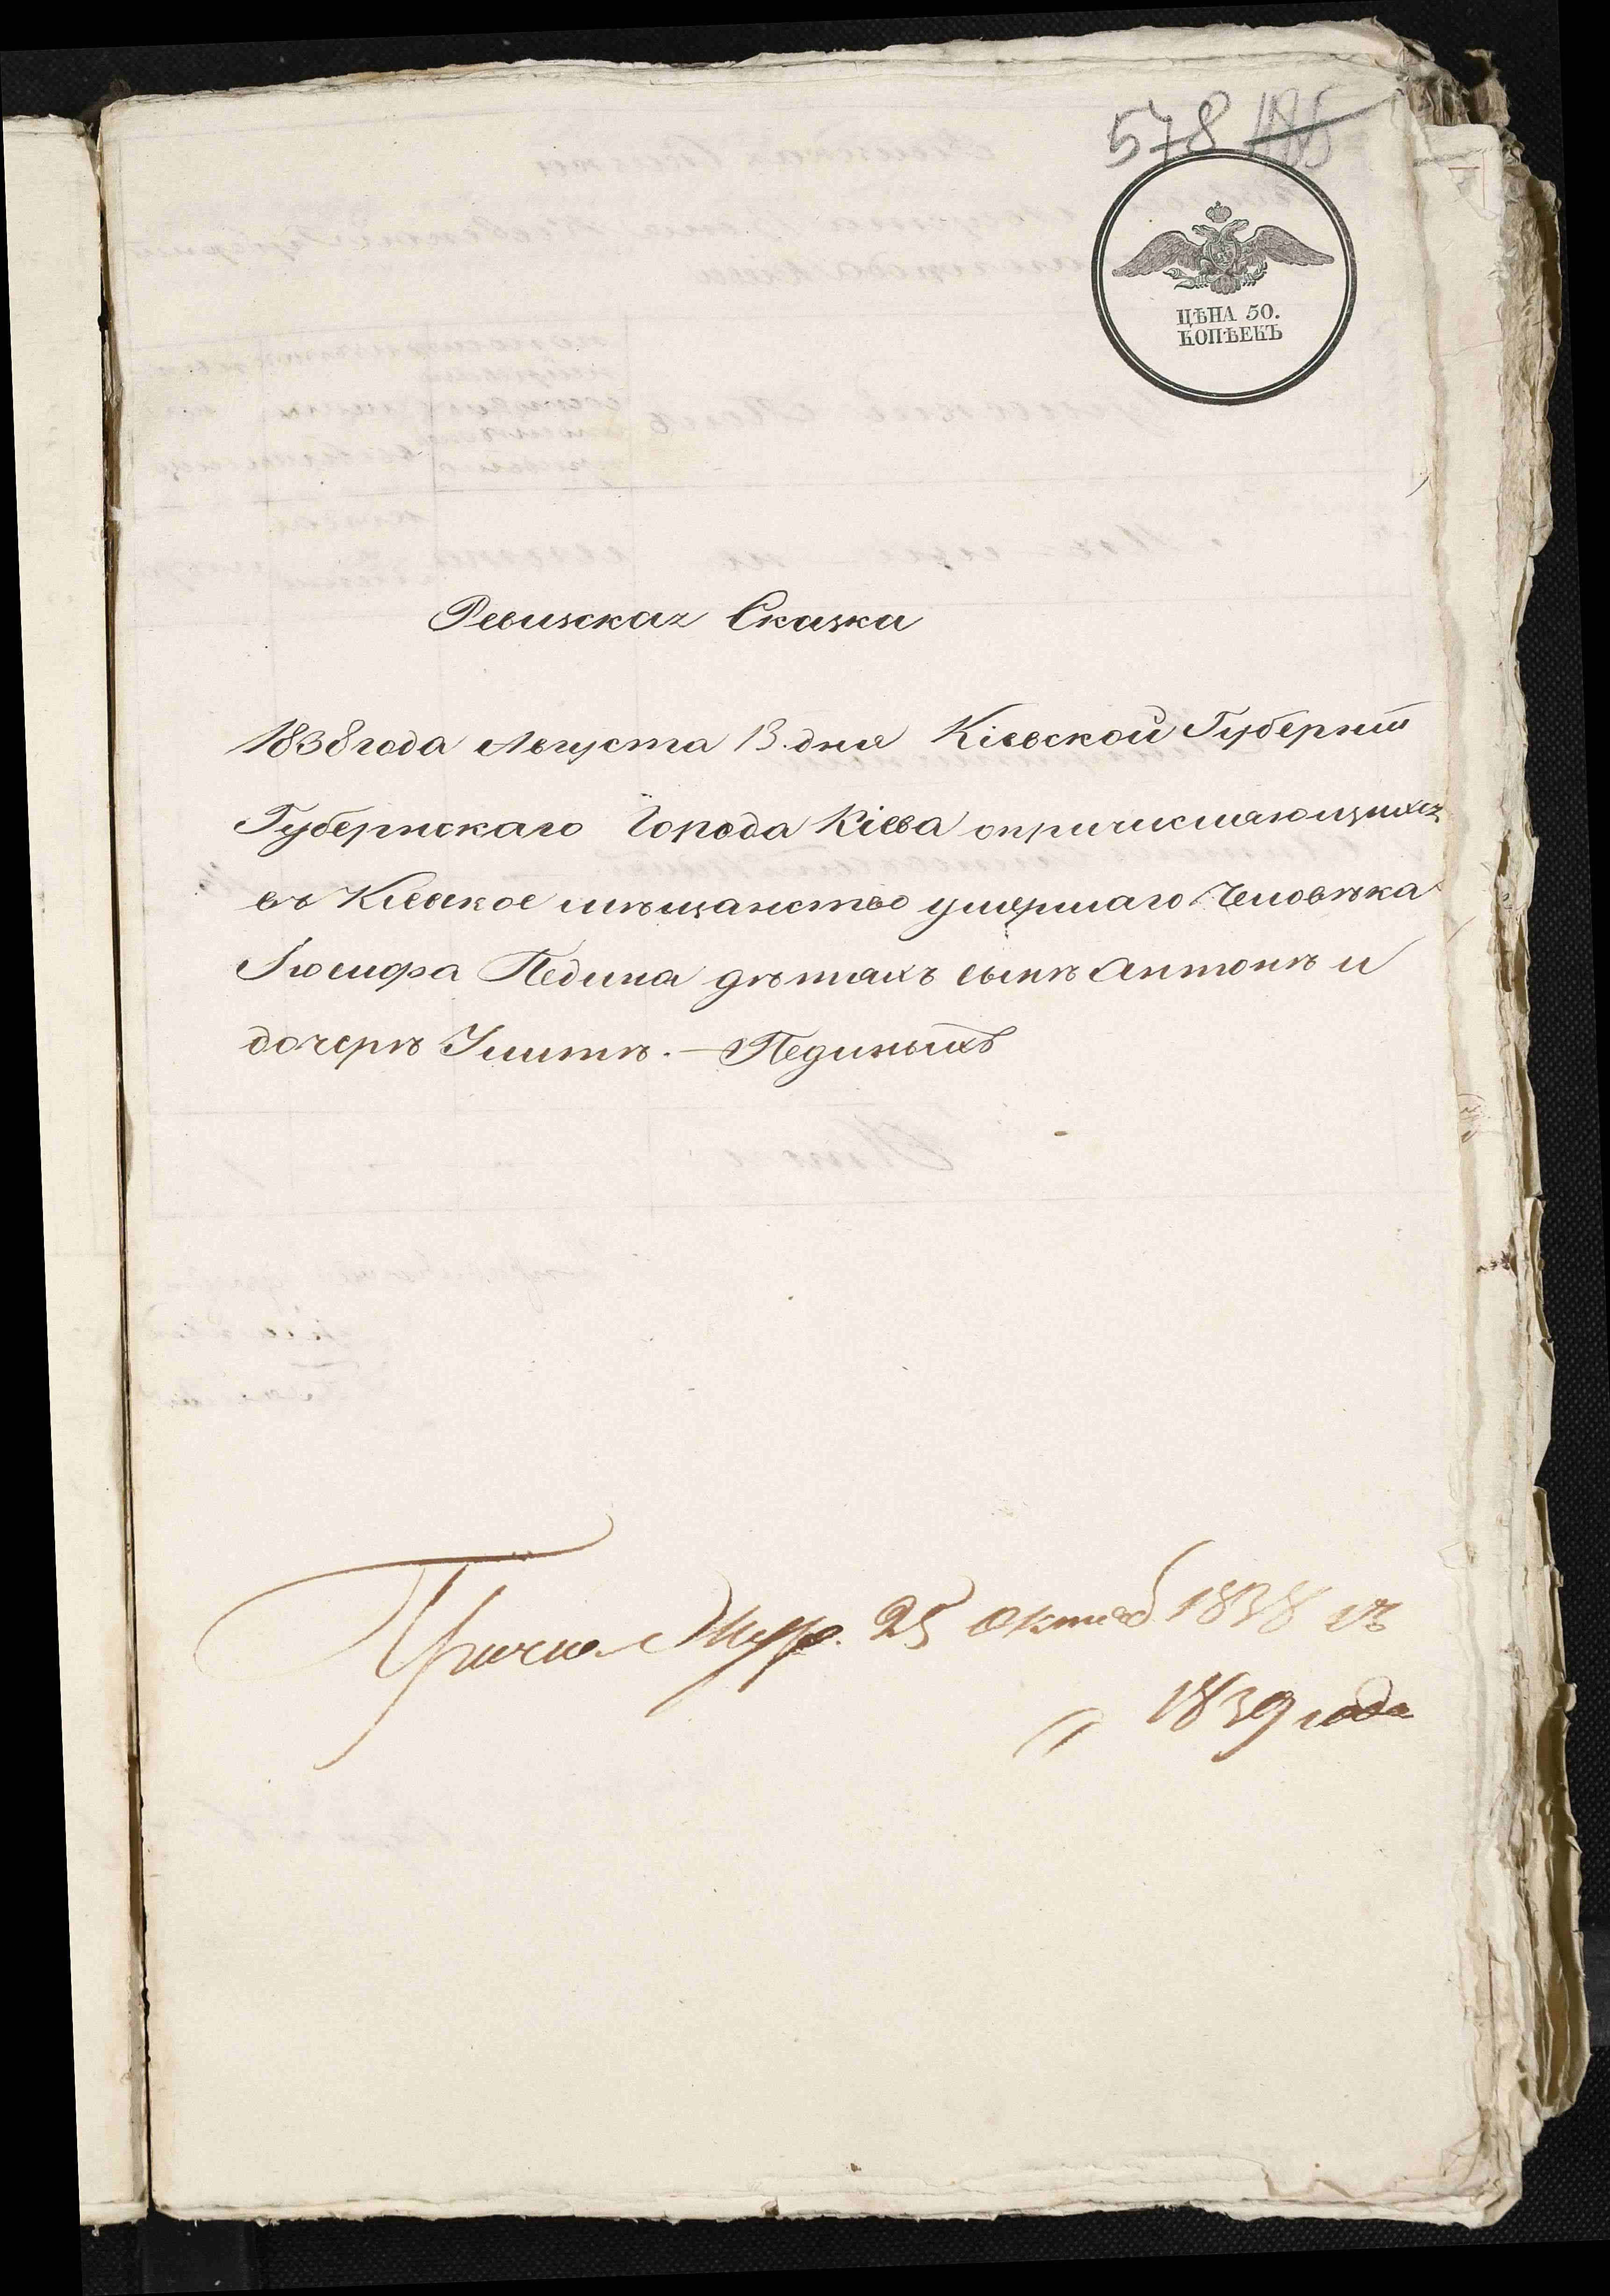 578 185
ЦѢНА 50.
КОПѢЕКЪ
Ревизская Сказка
1838 года Августа 13. дня Кіевской Губерніи
Губернскаго Города Кіева опричисляющихся
въ Кіевское мѣщанство умершаго Человѣка
Іосифа Педина дѣтахъ сынѣ Антонѣ и
дочерѣ Улитѣ. — Пединыхъ
Причис. Жур. 25 Октяб 1838 съ
1839 года